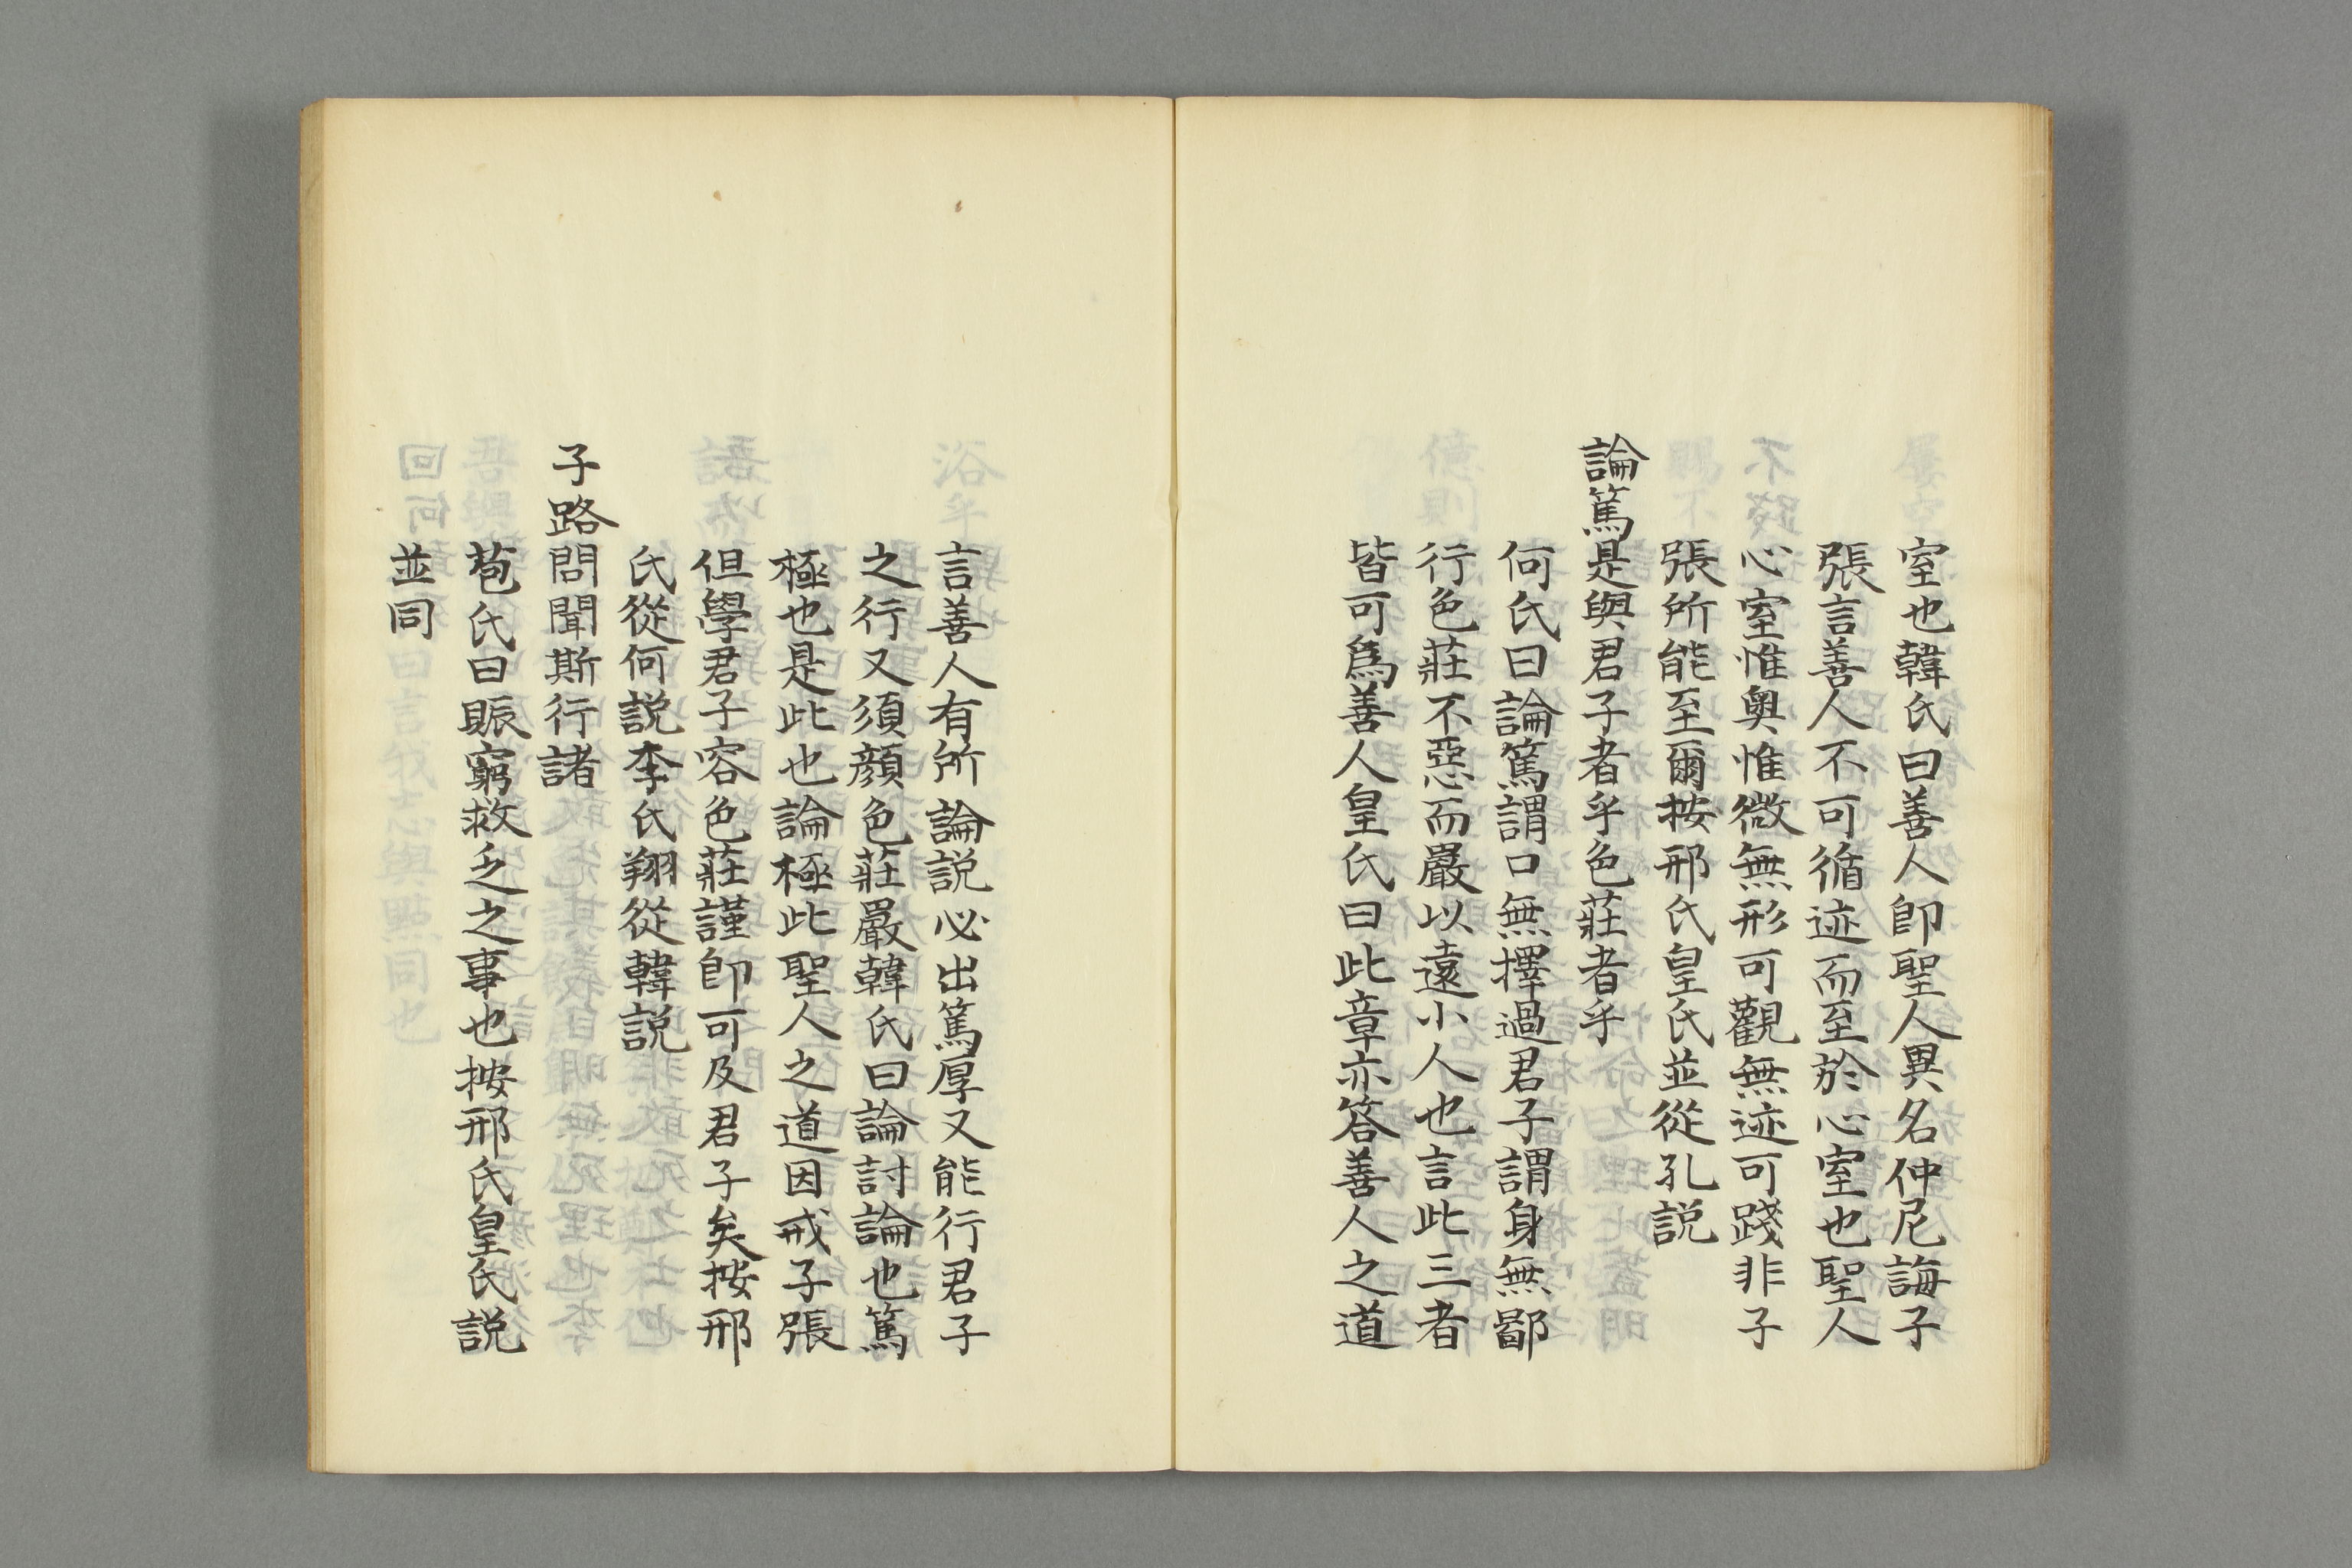 室也韓氏曰善人卽聖人異名仲尼誨子
張言善人不可循迹而至於心室也聖人
心室惟奧惟微無形可觀無迹可踐非子
張所能至爾按邢氏皇氏並從孔説
論篤是與君子者乎色莊者乎
何氏曰論篤謂口無擇過君子謂身無鄙
行色莊不惡而嚴以遠小人也言此三者
皆可爲善人皇氏曰此章亦答善人之道
言善人有所論説必出篤厚又能行君子
之行又須顔色莊嚴韓氏曰論討論也篤
極也是此也論極此聖人之道因戒子張
但學君子容色莊謹卽可及君子矣按邢
氏從何説李氏翔從韓説
子路問聞斯行諸
苞氏曰賑窮救乏之事也按邢氏皇氏説
並同